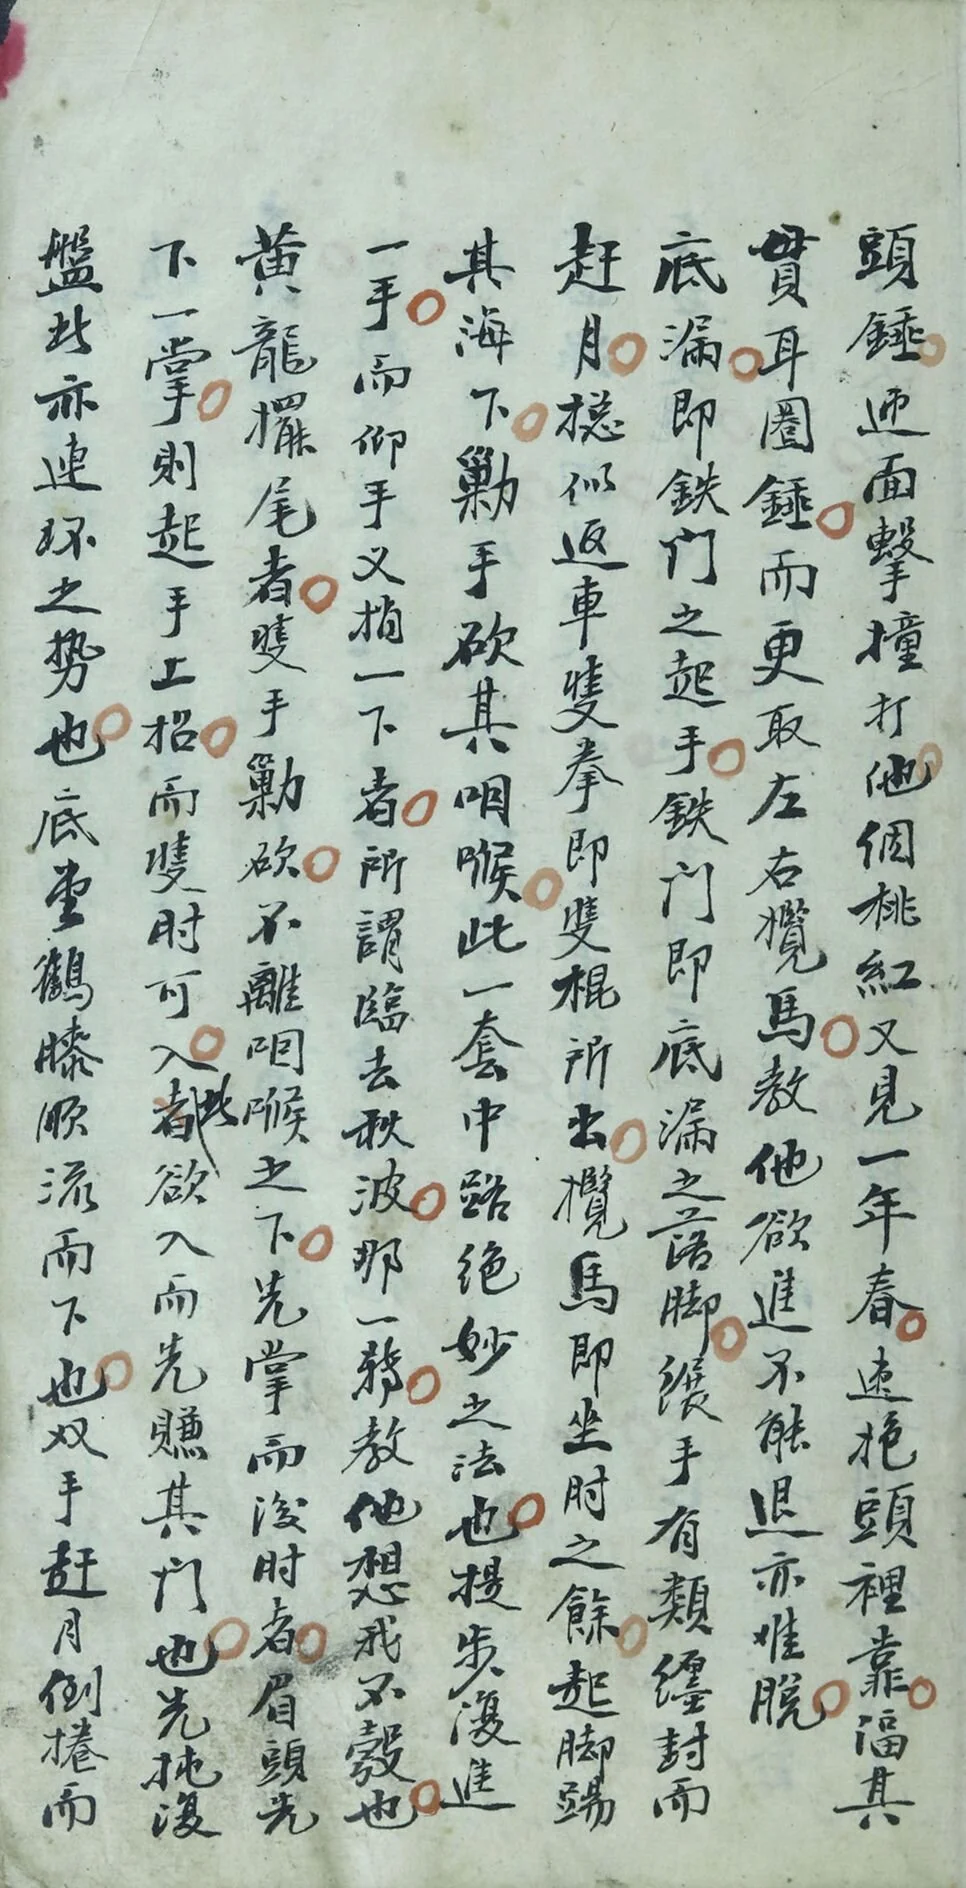 頭錘迎面擊撞打他個桃紅又見一年春速抱頭裡靠逼其
貫耳圈錘而更取左右攬馬教他欲進不能退亦难脱
底漏即鉄门之起手鉄门即底漏之落脚緩手有類纏封而
赶月揔似返車雙拳即雙棍所出攬馬即坐肘之餘起脚踢
其海下勦手砍其咽喉此一套中路绝妙之法也提步復進
一手而仰手又掯一下者所謂臨去秋波那一轉教他想我不彀也
黄龍擺尾者雙手勦砍不離咽喉之下先掌而後肘者眉頭先
下一掌則起手上招而雙肘可入此都欲入而先賺其门也先扽復
盤此亦連环之势也底堂鶴膝顺流而下也双手赶月倒捲而